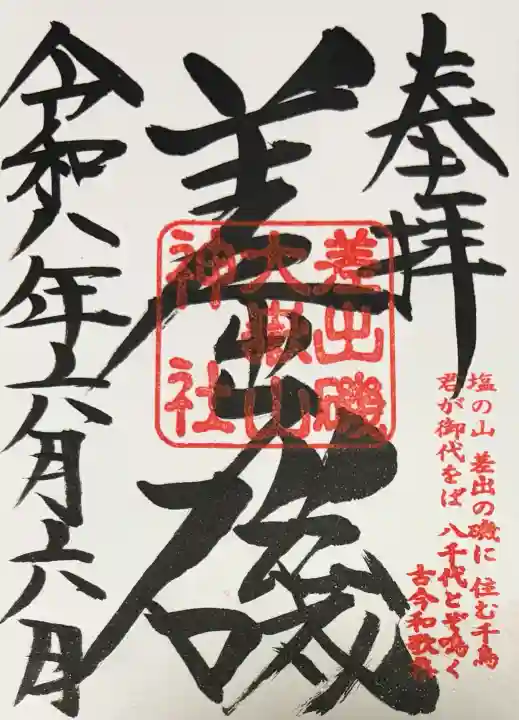 奉拝
塩の山 差出の磯に 住む千鳥
君が御代をば 八千代とぞ鳴く
古今和歌集
差出磯
差出磯
大嶽山
神社
令和八年六月六日